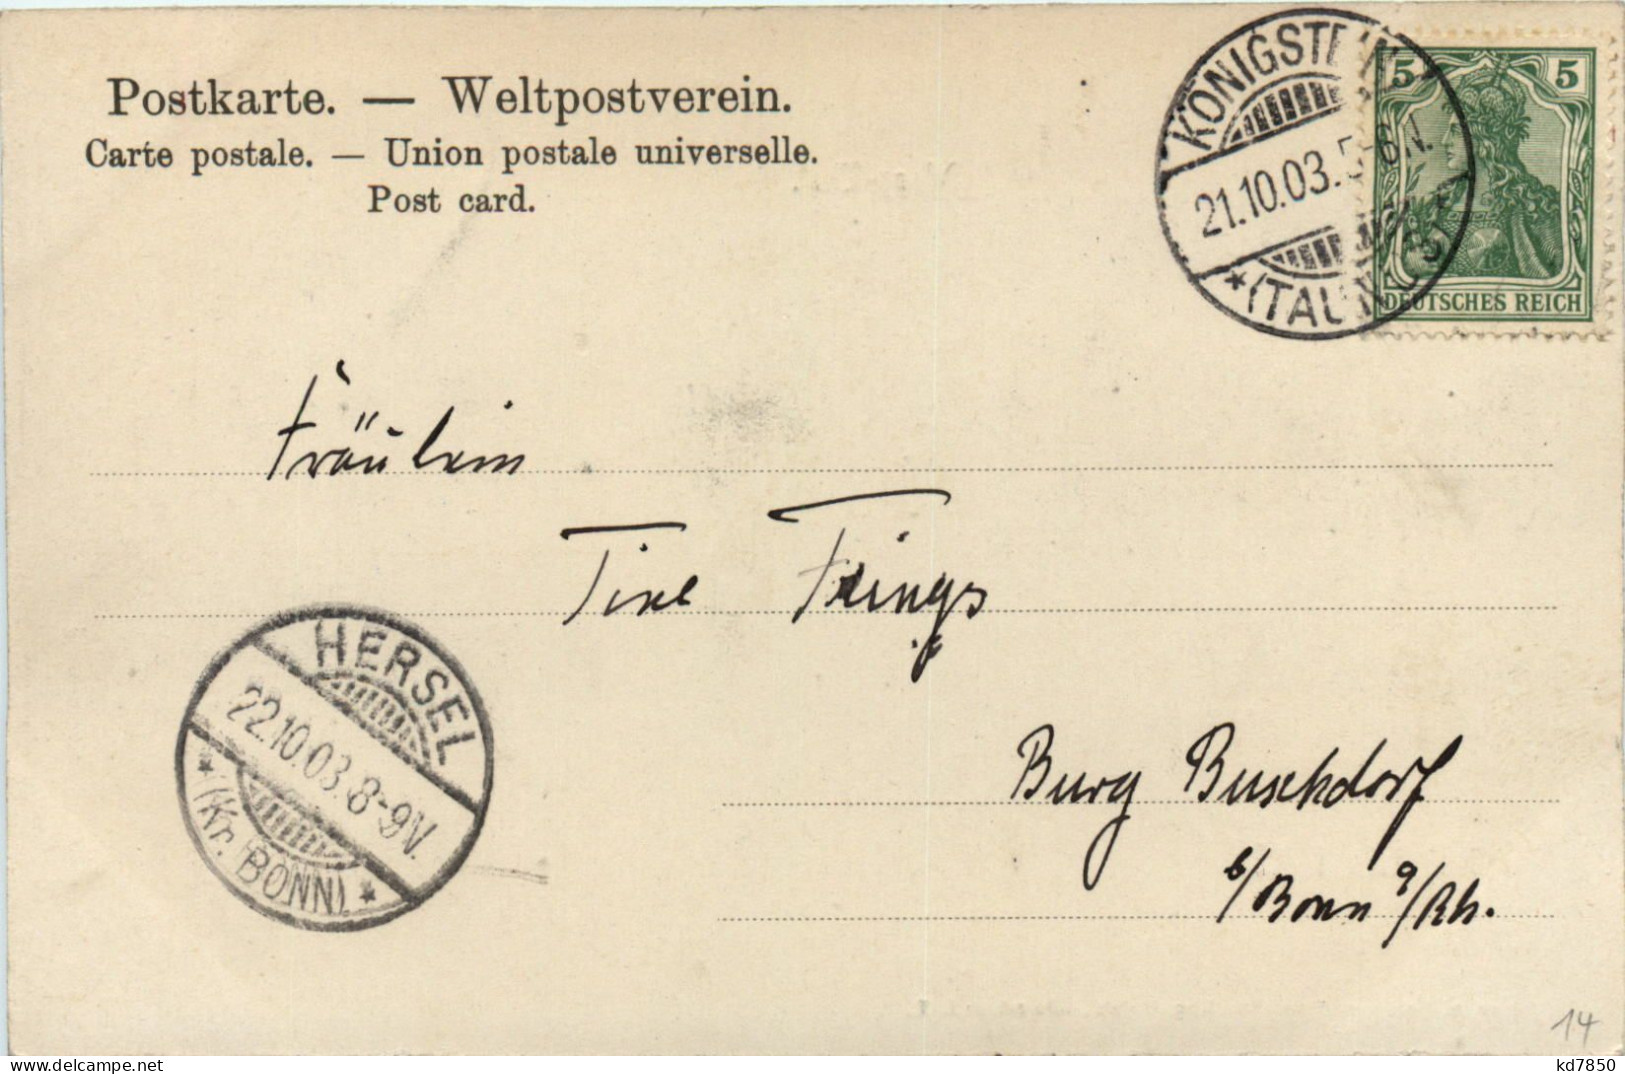 Postkarte. — Weltpostverein.
Carte postale. — Union postale universelle.
Post card.
KÖNIGSTEIN
21.10.03. 5-6N.
* (TAUNUS)
5 5
DEUTSCHES REICH
Fräulein
Tine Frings
HERSEL
22.10.03. 8-9V.
* (Kr. BONN). *
Burg Buschdorf
b/Bonn a/Rh.
14
kd7850